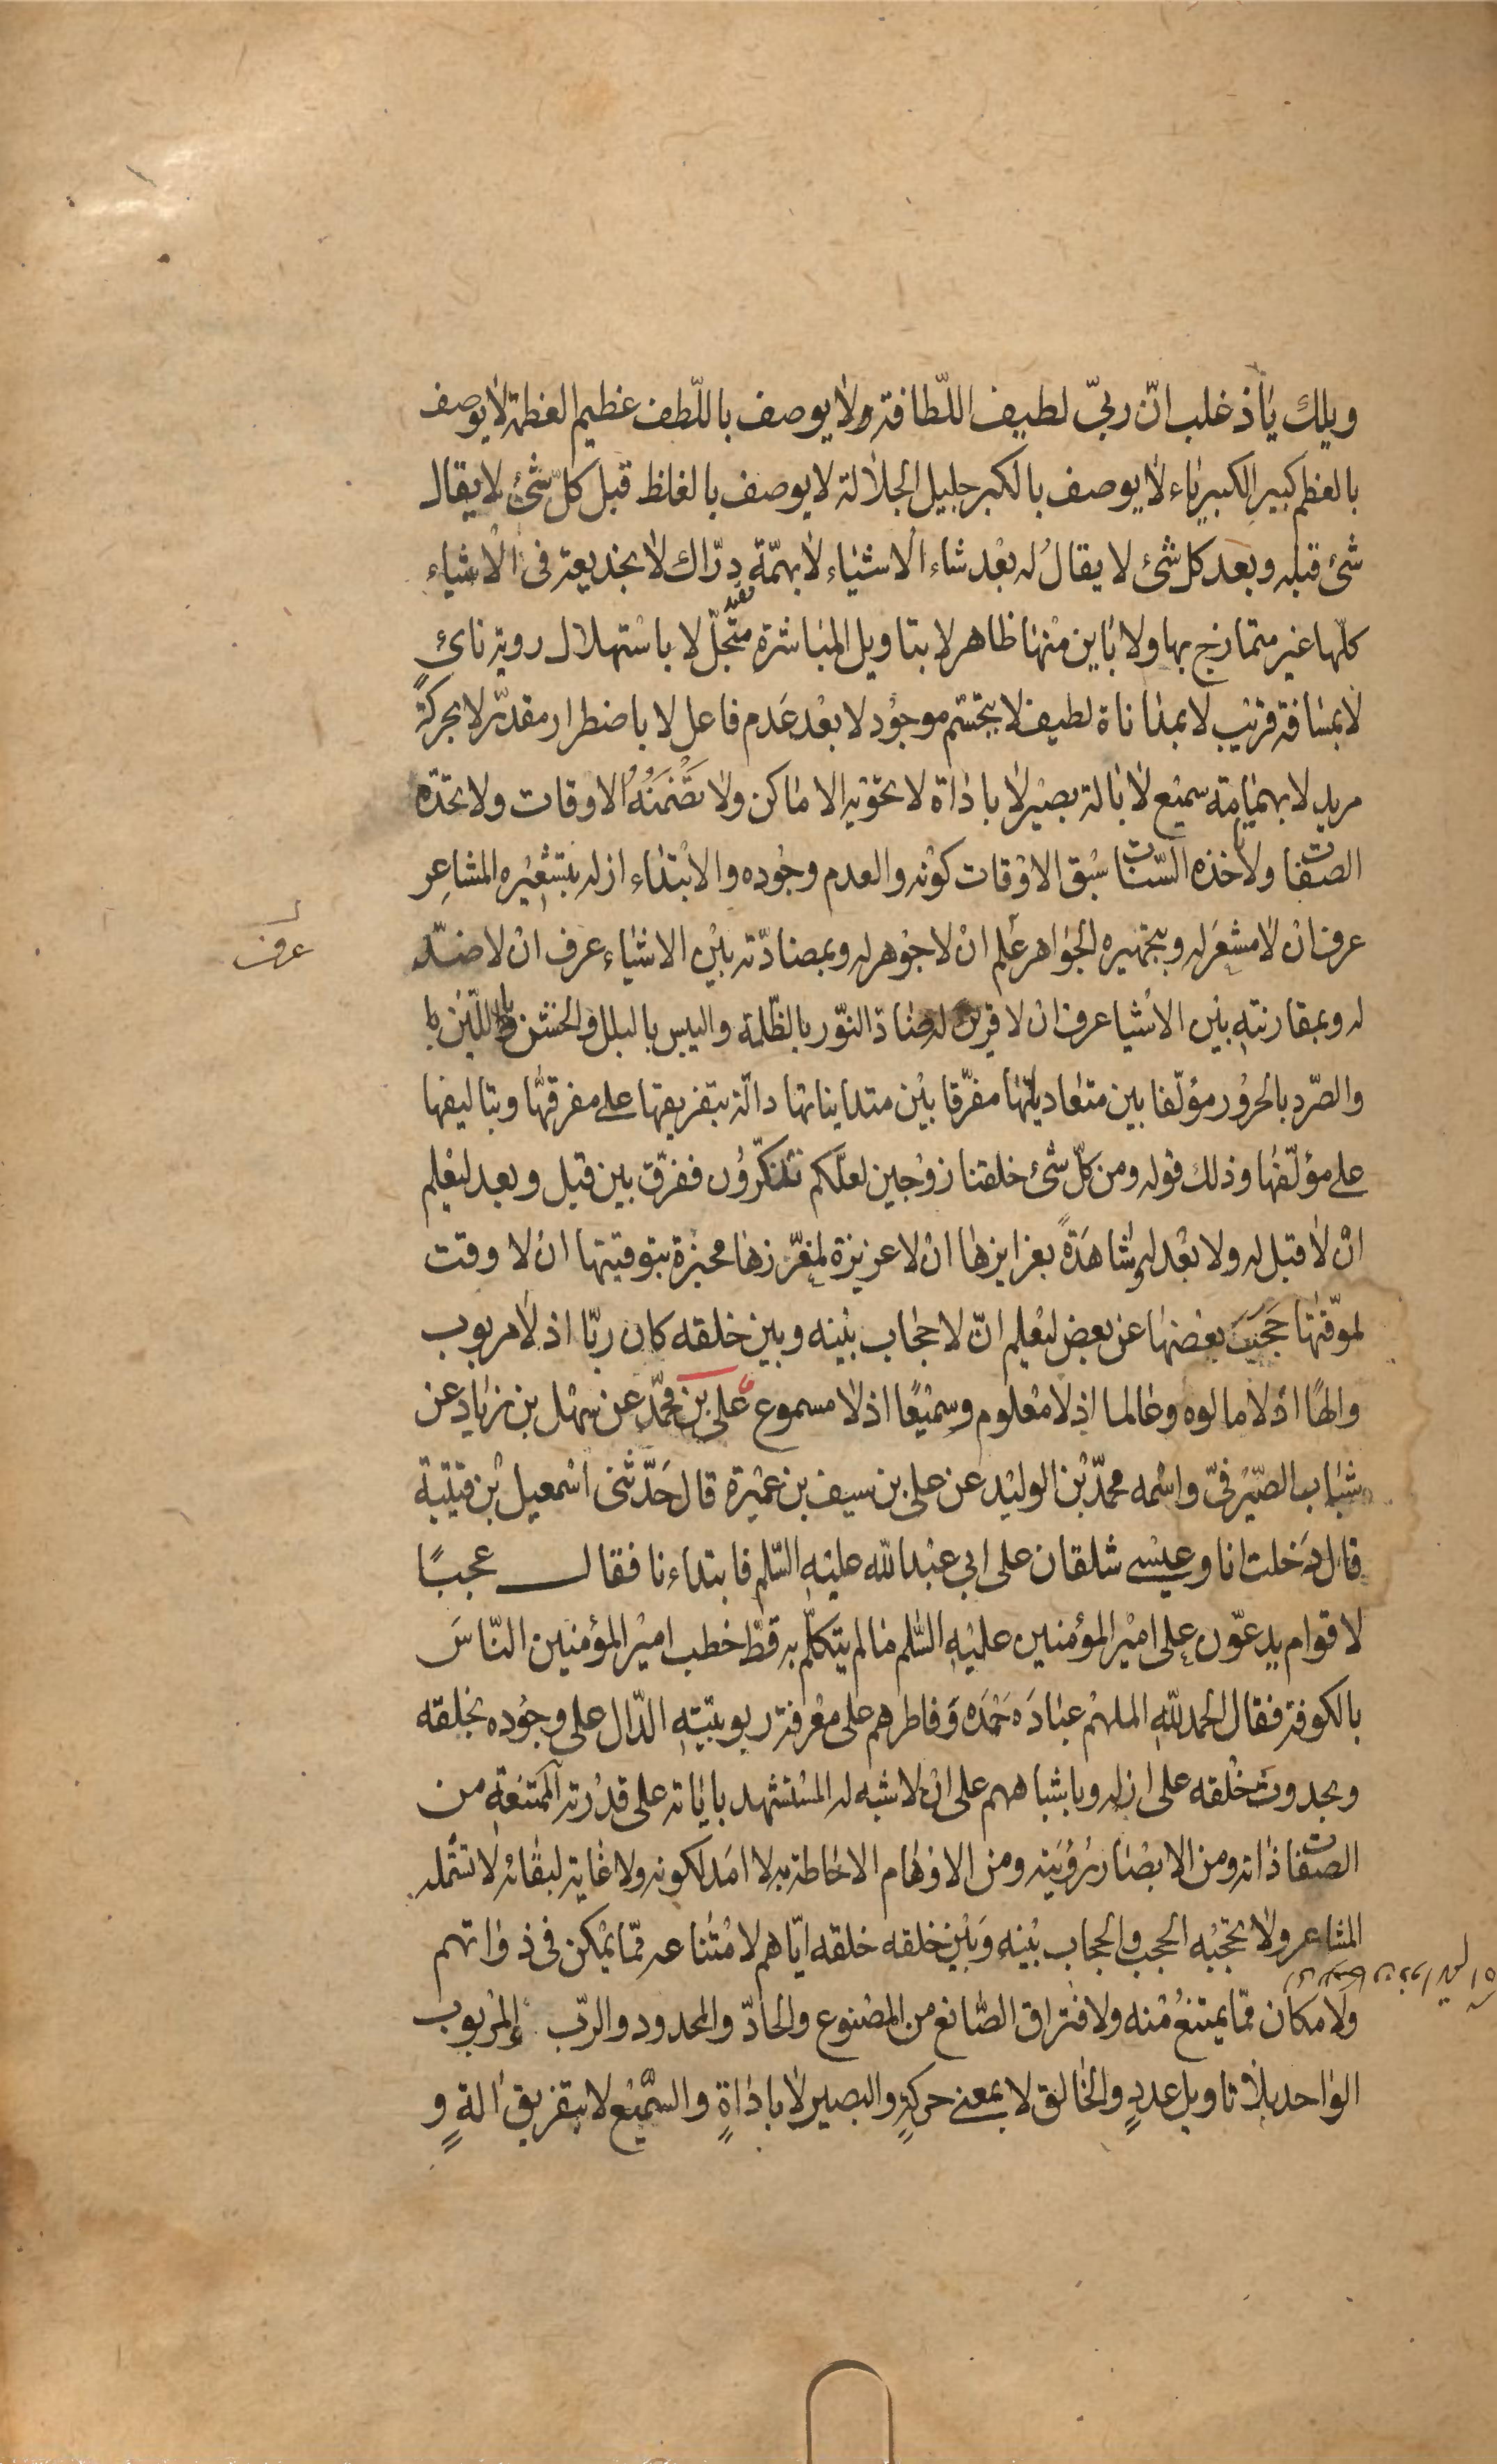 ويلك يا ذعلب انّ ربّي لطيف اللّطافة ولا يوصف باللّطف عظيم العظمة لا يوصف
بالعظم كبير الكبرياء لا يوصف بالكبر جليل الجلالة لا يوصف بالغلظ قبل كلّ شئ لا يقال
شئ قبله وبعد كل شئ لا يقال له بعد شاء الاشياء لا بهمّة درّاك لا بخديعة في الاشياء
كلّها غير متمازج بها ولا باين منها ظاهر لا بتاويل المباشرة متجلّ لا باستهلال روية نائ
لا بمسافة قريب لا بمداناة لطيف لا بتجسّم موجود لا بعد عدم فاعل لا باضطرار مقدّر لا بحركة
مريد لا بهمامة سميع لا بالة بصير لا باداة لا تحويه الاماكن ولا تضمنه الاوقات ولا تحدّه
الصفات ولا تاخذه السّنات سبق الاوقات كونه والعدم وجوده والابتداء ازله بتشعيره المشاعر
عرف ان لا مشعر له وبتجهيره الجواهر علم ان لا جوهر له وبمضادّته بين الاشياء عرف ان لا ضدّ
عرف
له وبمقارنته بين الاشيا عرف ان لا قرين له ضادّ النّور بالظّلمة واليبس بالبلل والخشن باللّين
والصّرد بالحرور مؤلّفا بين متعادياتها مفرّقا بين متدايناتها دالّة بتفريقها على مفرقها وبتاليفها
على مؤلّفها وذلك قوله ومن كلّ شئ خلقنا زوجين لعلّكم تذكّرون ففرّق بين قبل وبعد ليعلم
ان لا قبل له ولا بعد له شاهدة بغرايزها ان لا غريزة لمغرّزها مخبرة بتوقيتها ان لا وقت
لموقّتها حجب بعضها عن بعض ليعلم انّ لا حجاب بينه وبين خلقه كان ربّا اذ لا مربوب
والهًا اذ لا مالوه وعالما اذ لا معلوم وسميعًا اذ لا مسموع علي بن محمّد عن سهل بن زياد عن
شباب الصّيرفيّ واسمه محمّد بن الوليد عن علي بن سيف بن عميرة قال حدّثني اسمعيل بن قتيبة
قال دخلت انا وعيسى شلقان على ابي عبد الله عليه السّلم فابتداءنا فقال عجبًا
لاقوام يدعّون على امير المؤمنين عليه السّلم ما لم يتكلّم به قطّ خطب امير المؤمنين النّاس
بالكوفة فقال الحمد لله الملهم عباده حمده وفاطرهم على معرفة ربوبيّته الدّال على وجوده بخلقه
وبحدوث خلقه على ازله وباشباههم على ان لا شبه له المستشهد باياته على قدرته الممتنعة من
الصفات ذاته ومن الابصار رؤيته ومن الاوهام الاحاطة به لا امد لكونه ولا غاية لبقائه لا تشمله
المشاعر ولا تحجبه الحجب والحجاب بينه وبين خلقه خلقه ايّاهم لامتناعه ممّا يمكن في ذواتهم
ولامكان ممّا يمتنع منه ولافتراق الصّانع من المصنوع والحادّ والمحدود والرّب والمربوب
الواحد بلا تاويل عددٍ والخالق لا بمعنى حركةٍ والبصير لا باداةٍ والسّميع لا بتفريق الةٍ و